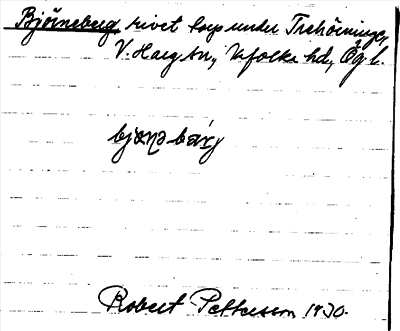 Björneberg rivet torp under Trehörningen,
V. Harg sn, Vifolka hd, Ög l.
bjœ̄ṇəbærj
Robert Pettersson 1930.